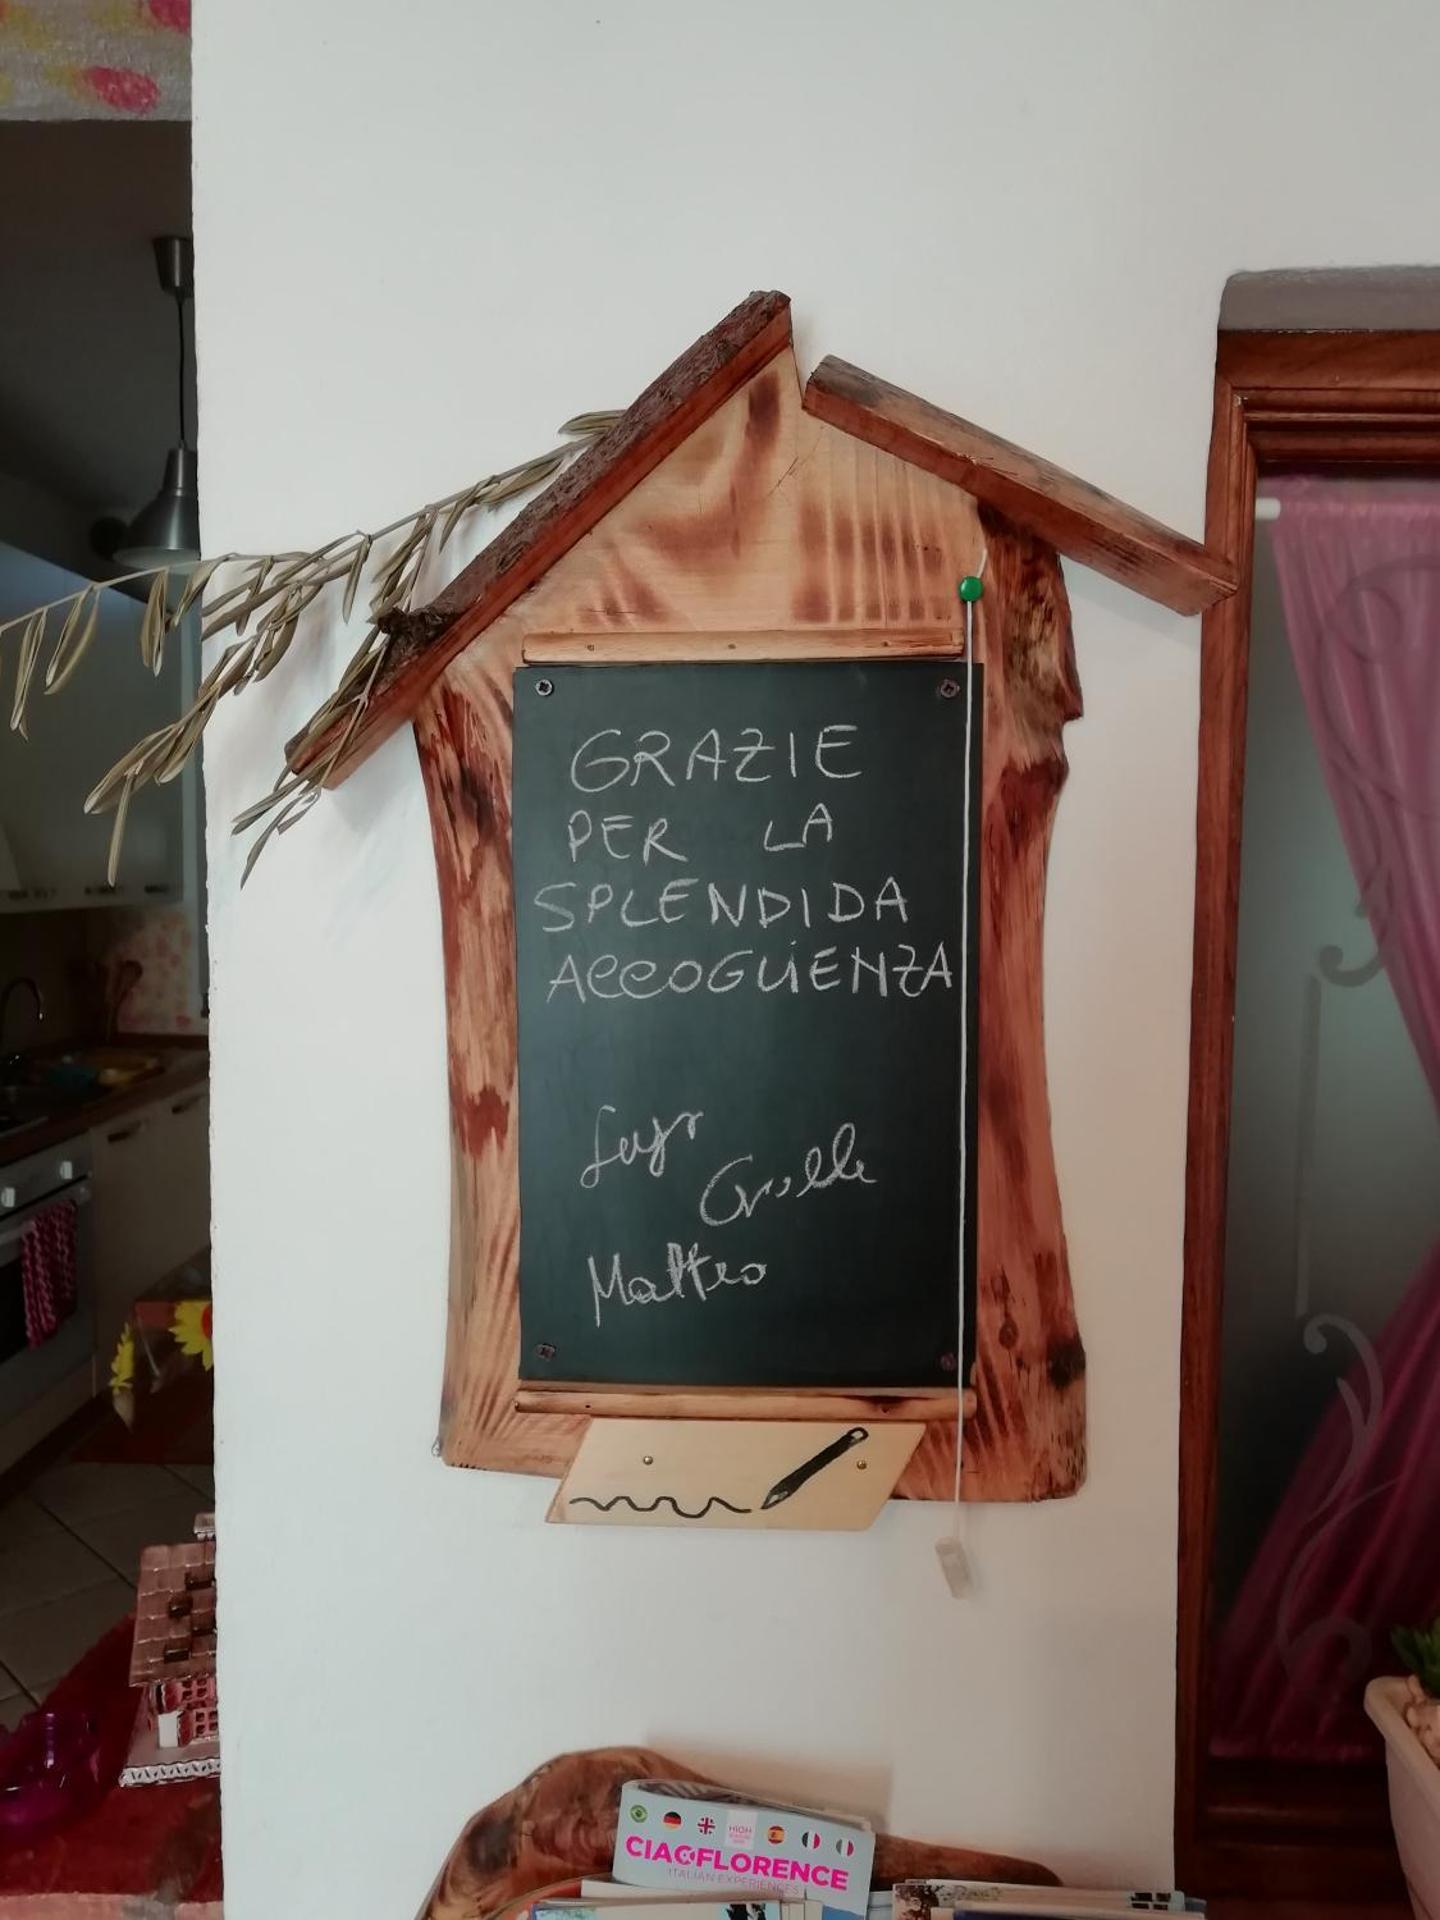 GRAZIE
PER LA
SPLENDIDA
ACCOGLIENZA
Matteo
HIGH
CIAOFLORENCE
ITALIAN EXPERIENCES